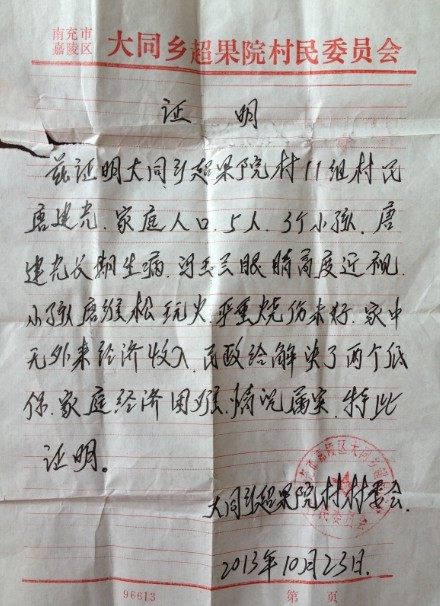 南充市
嘉陵区
大同乡超果院村民委员会
证 明
兹证明大同乡超果院村11组村民
唐建光.家庭人口.5人.3个小孩.唐
建光长期生病.冯玉兰眼睛高度近视.
小孩唐继松玩火.严重烧伤未好.家中
无外来经济收入.民政给解决了两个低
保.家庭经济困难.情况属实.特此
证明。
大同乡超果院村村委会.
2013年10月23日.
96613
第 页